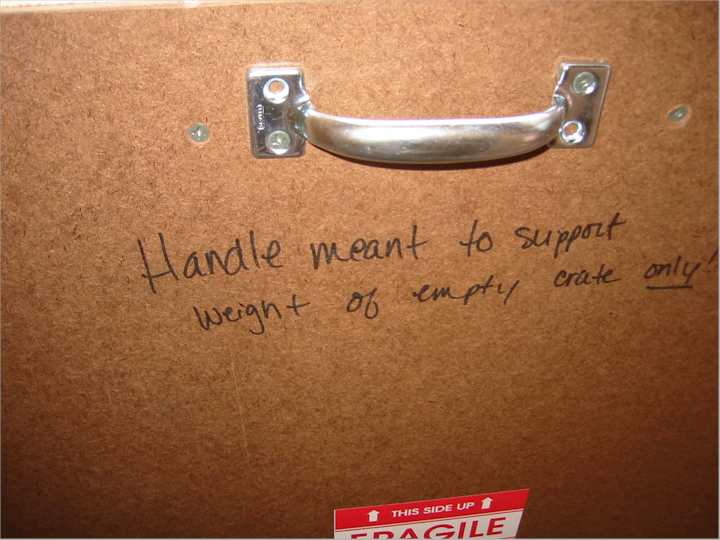 Handle meant to support
weight of empty crate only!
THIS SIDE UP
FRAGILE